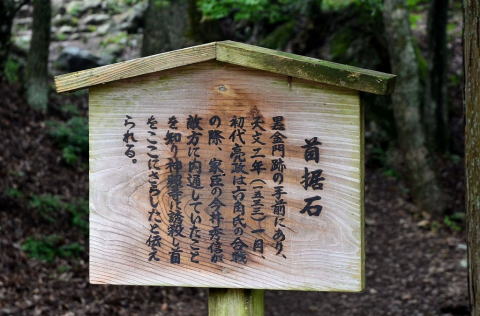 首据石
黒金門跡の手前にあり、
天文二年(一五三三)一月、
初代亮政は六角氏との合戦
の際、家臣の今井秀信が
敵方に内通していたこと
を知り神照寺に誘殺し首
をここにさらしたと伝え
られる。